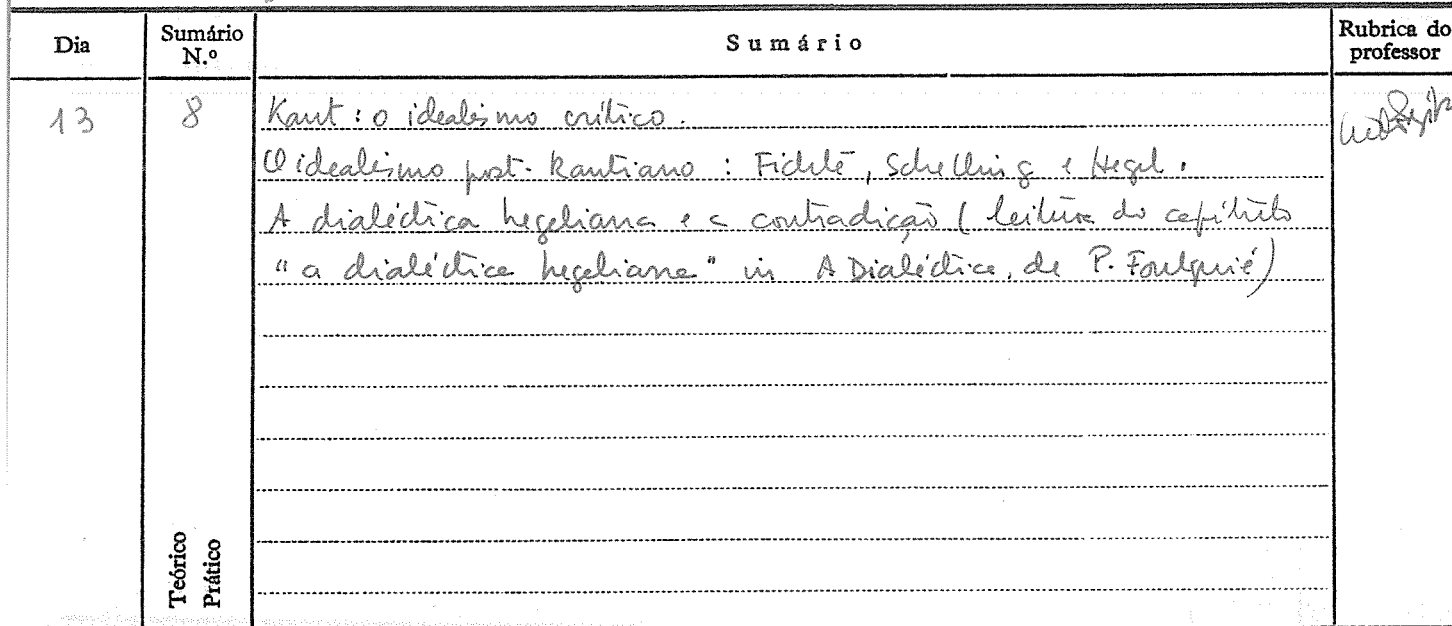 Dia
Sumário N.º
Sumário
Rubrica do professor
13
8
Kant : o idealismo crítico.
O idealismo post-kantiano : Fichte, Schelling e Hegel.
A dialéctica hegeliana e a contradição (leitura do capítulo
"a dialéctica hegeliana" in A Dialéctica, de P. Foulquié)
Teórico
Prático